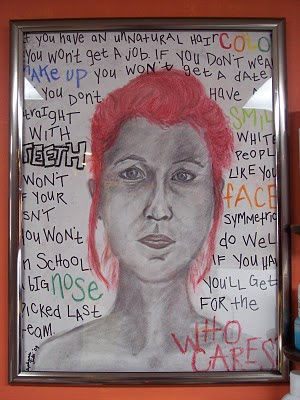 if you have an unnatural hair COLOR
you won't get a job. if you don't wear
make up you won't get a date
if you don't have a
straight SMILE
with white
TEETH people
won't like you
if your FACE
isn't symmetrical
you won't do well
in school. if you have
a big nose you'll get
picked last for the
team.
WHO
CARES?